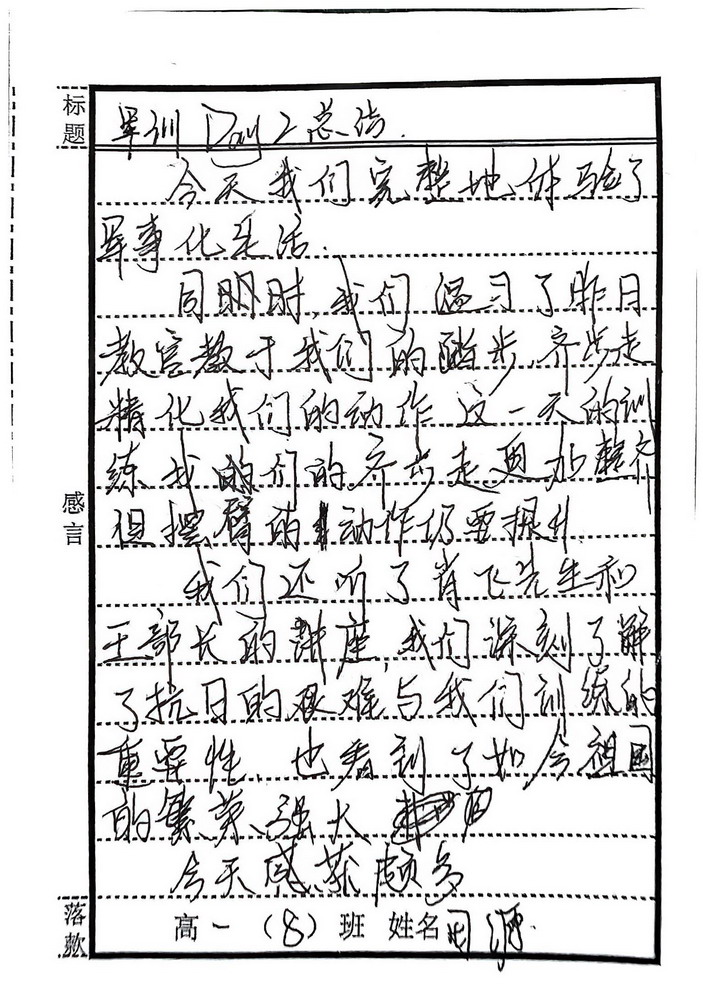 标题
军训 Day 2 总结.
今天我们完整地体验了
军事化生活.
同时,我们温习了昨日
教官教于我们的踏步,齐步走
精化我们的动作 这一天的训
练我的们的齐步走更加整齐
但摆臂的动作仍要提升.
我们还听了肖飞先生和
王部长的讲座,我们深刻了解
了抗日的艰难与我们训练的
重要性,也看到了如今祖国
的繁荣、强大
今天感获颇多
感言
落款
高一(8)班 姓名